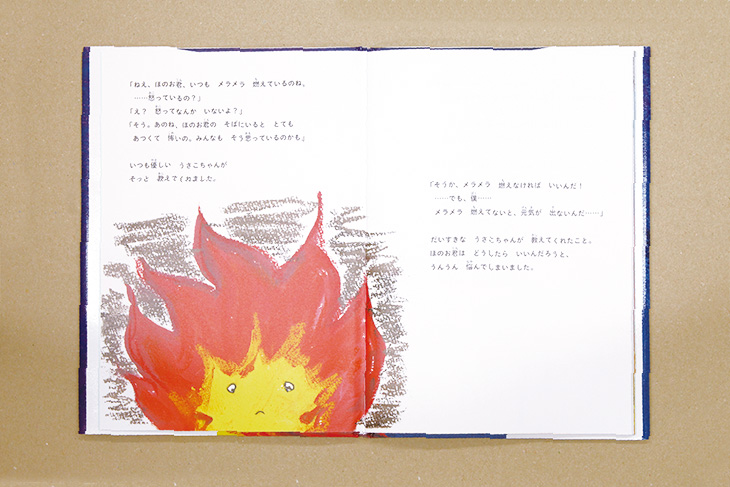 「ねえ、ほのお君、いつも メラメラ 燃えているのね。
……怒っているの？」
「え？ 怒ってなんか いないよ？」
「そう。あのね、ほのお君の そばにいると とても
あつくて 怖いの。みんなも そう思っているのかも」
いつも優しい うさこちゃんが
そっと 教えてくれました。
「そうか、メラメラ 燃えなければ いいんだ！
……でも、僕……
メラメラ 燃えてないと、元気が 出ないんだ……」
だいすきな うさこちゃんが 教えてくれたこと。
ほのお君は どうしたら いいんだろうと、
うんうん 悩んでしまいました。